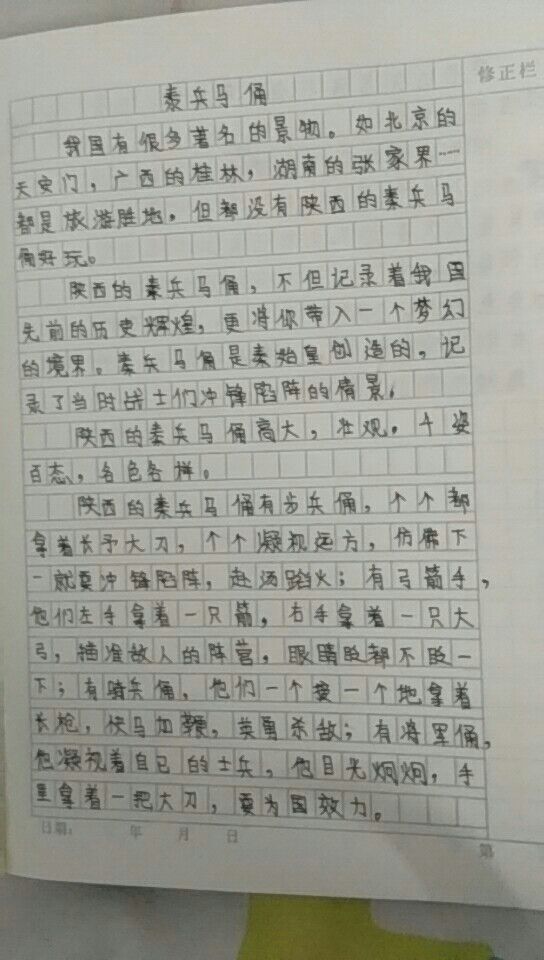 修正栏
秦兵马俑
我国有很多著名的景物。如北京的
天安门，广西的桂林，湖南的张家界……
都是旅游胜地，但都没有陕西的秦兵马
俑好玩。
陕西的秦兵马俑，不但记录着我国
先前的历史辉煌，更将你带入一个梦幻
的境界。秦兵马俑是秦始皇创造的，记
录了当时战士们冲锋陷阵的情景。
陕西的秦兵马俑高大，壮观。千姿
百态，各色各样。
陕西的秦兵马俑有步兵俑，个个都
拿着长予大刀，个个凝视远方，仿佛下
一就要冲锋陷阵，赴汤蹈火；有弓箭手，
他们左手拿着一只箭，右手拿着一只大
弓，描准敌人的阵营，眼睛眨都不眨一
下；有骑兵俑，他们一个接一个地拿着
长枪，快马加鞭，英勇杀敌；有将军俑，
他凝视着自已的士兵，他目光炯炯，手
里拿着一把大刀，要为国效力。
日期： 年 月 日
第